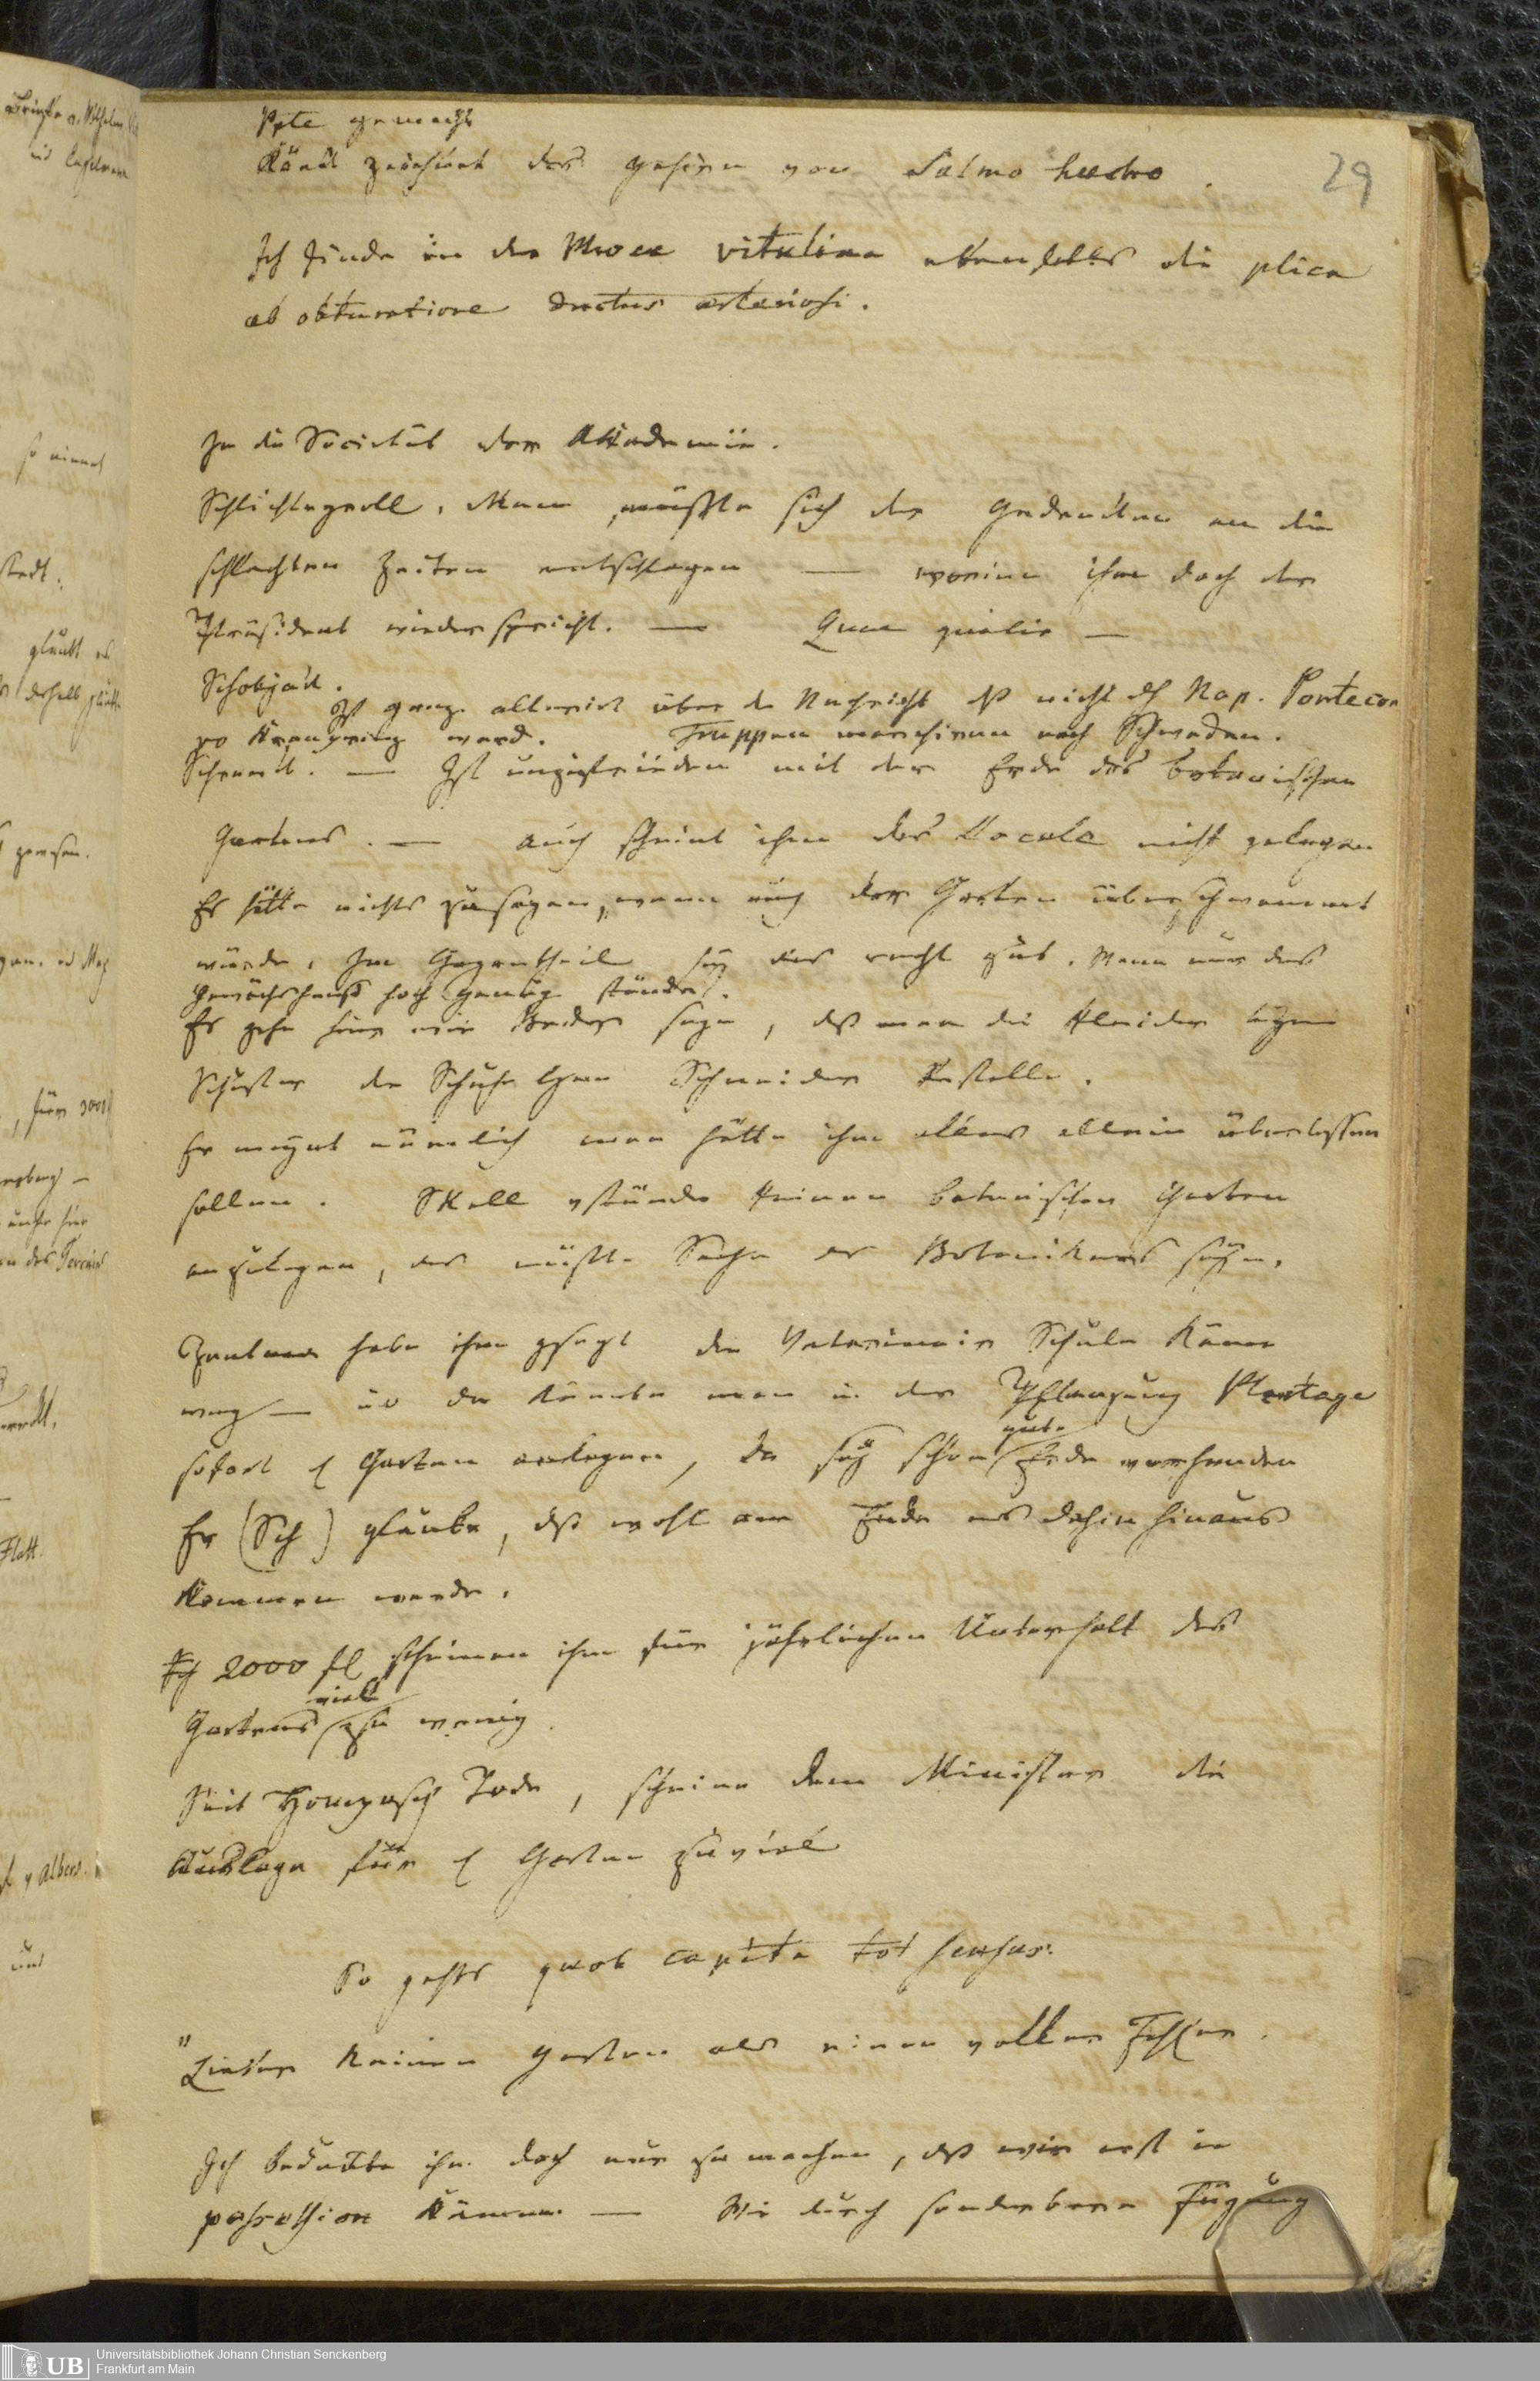 29
Ppte gemacht
Köck zeichnet das Gehirn von Salmo hucho.
Ich finde in der Phoca vitulina ebenfalls die plica
ab obturatione ductus arteriosi.
In die Societät der Akademie.
Schlichtegroll. Man müsste sich der Gedancken an die
schlechten Zeiten entschlagen — worinn ihm doch der
Präsident wiederspricht. — Quae qualis —
Schobjack.
Ist ganz allarirt über die Nachricht dß nicht dch Nap. Pontecor
vo Kronprinz ward. Truppen marschiren nach Schweden.
Schranck. — Ist unzufrieden mit der Erde des botanischen
Gartens. — auch scheint ihm das Locale nicht gelegen
Er hätte nichts zusagen, wenn auch der Garten überschwemmt
würde, Im Gegentheile sey das recht gut. Wenn nur das
Gewächshauß hoch genug stände.
Er gehe hier wie Bader sage, dß man die Kleider beym
Schuster die Schuhe beym Schneider bestelle.
Er meynt nämlich man hätte ihm alles allein überlassen
sollen. Skell vstünde keinen botanischen Garten
anzulegen, das müsste Sache des Botanikers seyn.
Zentner habe ihm gesagt die Veterinair Schule käme
weg — und da könnte man in der Pflanzung Plantage
sofort e Garten anlegen, da sey schon gute Erde vorhanden
Er (Sch) glaube, dß wohl am Ende es dahin hinaus
kommen werde.
2000 fl scheinen ihm für jährlichen Unterhalt des
Gartens viel zu wenig.
Seit Hompesch Tode, scheine dem Minister die
Auslage für e Garten zuviel
So gehts quot capita tot sensus.
"Lieber keinen Garten als einen voller Fehler.
Ich bedeutete ihm doch nur zu machen, dß wir erst in
possession kämen. — Wie durch sonderbare Fügung
Universitätsbibliothek Johann Christian Senckenberg
Frankfurt am Main
UB